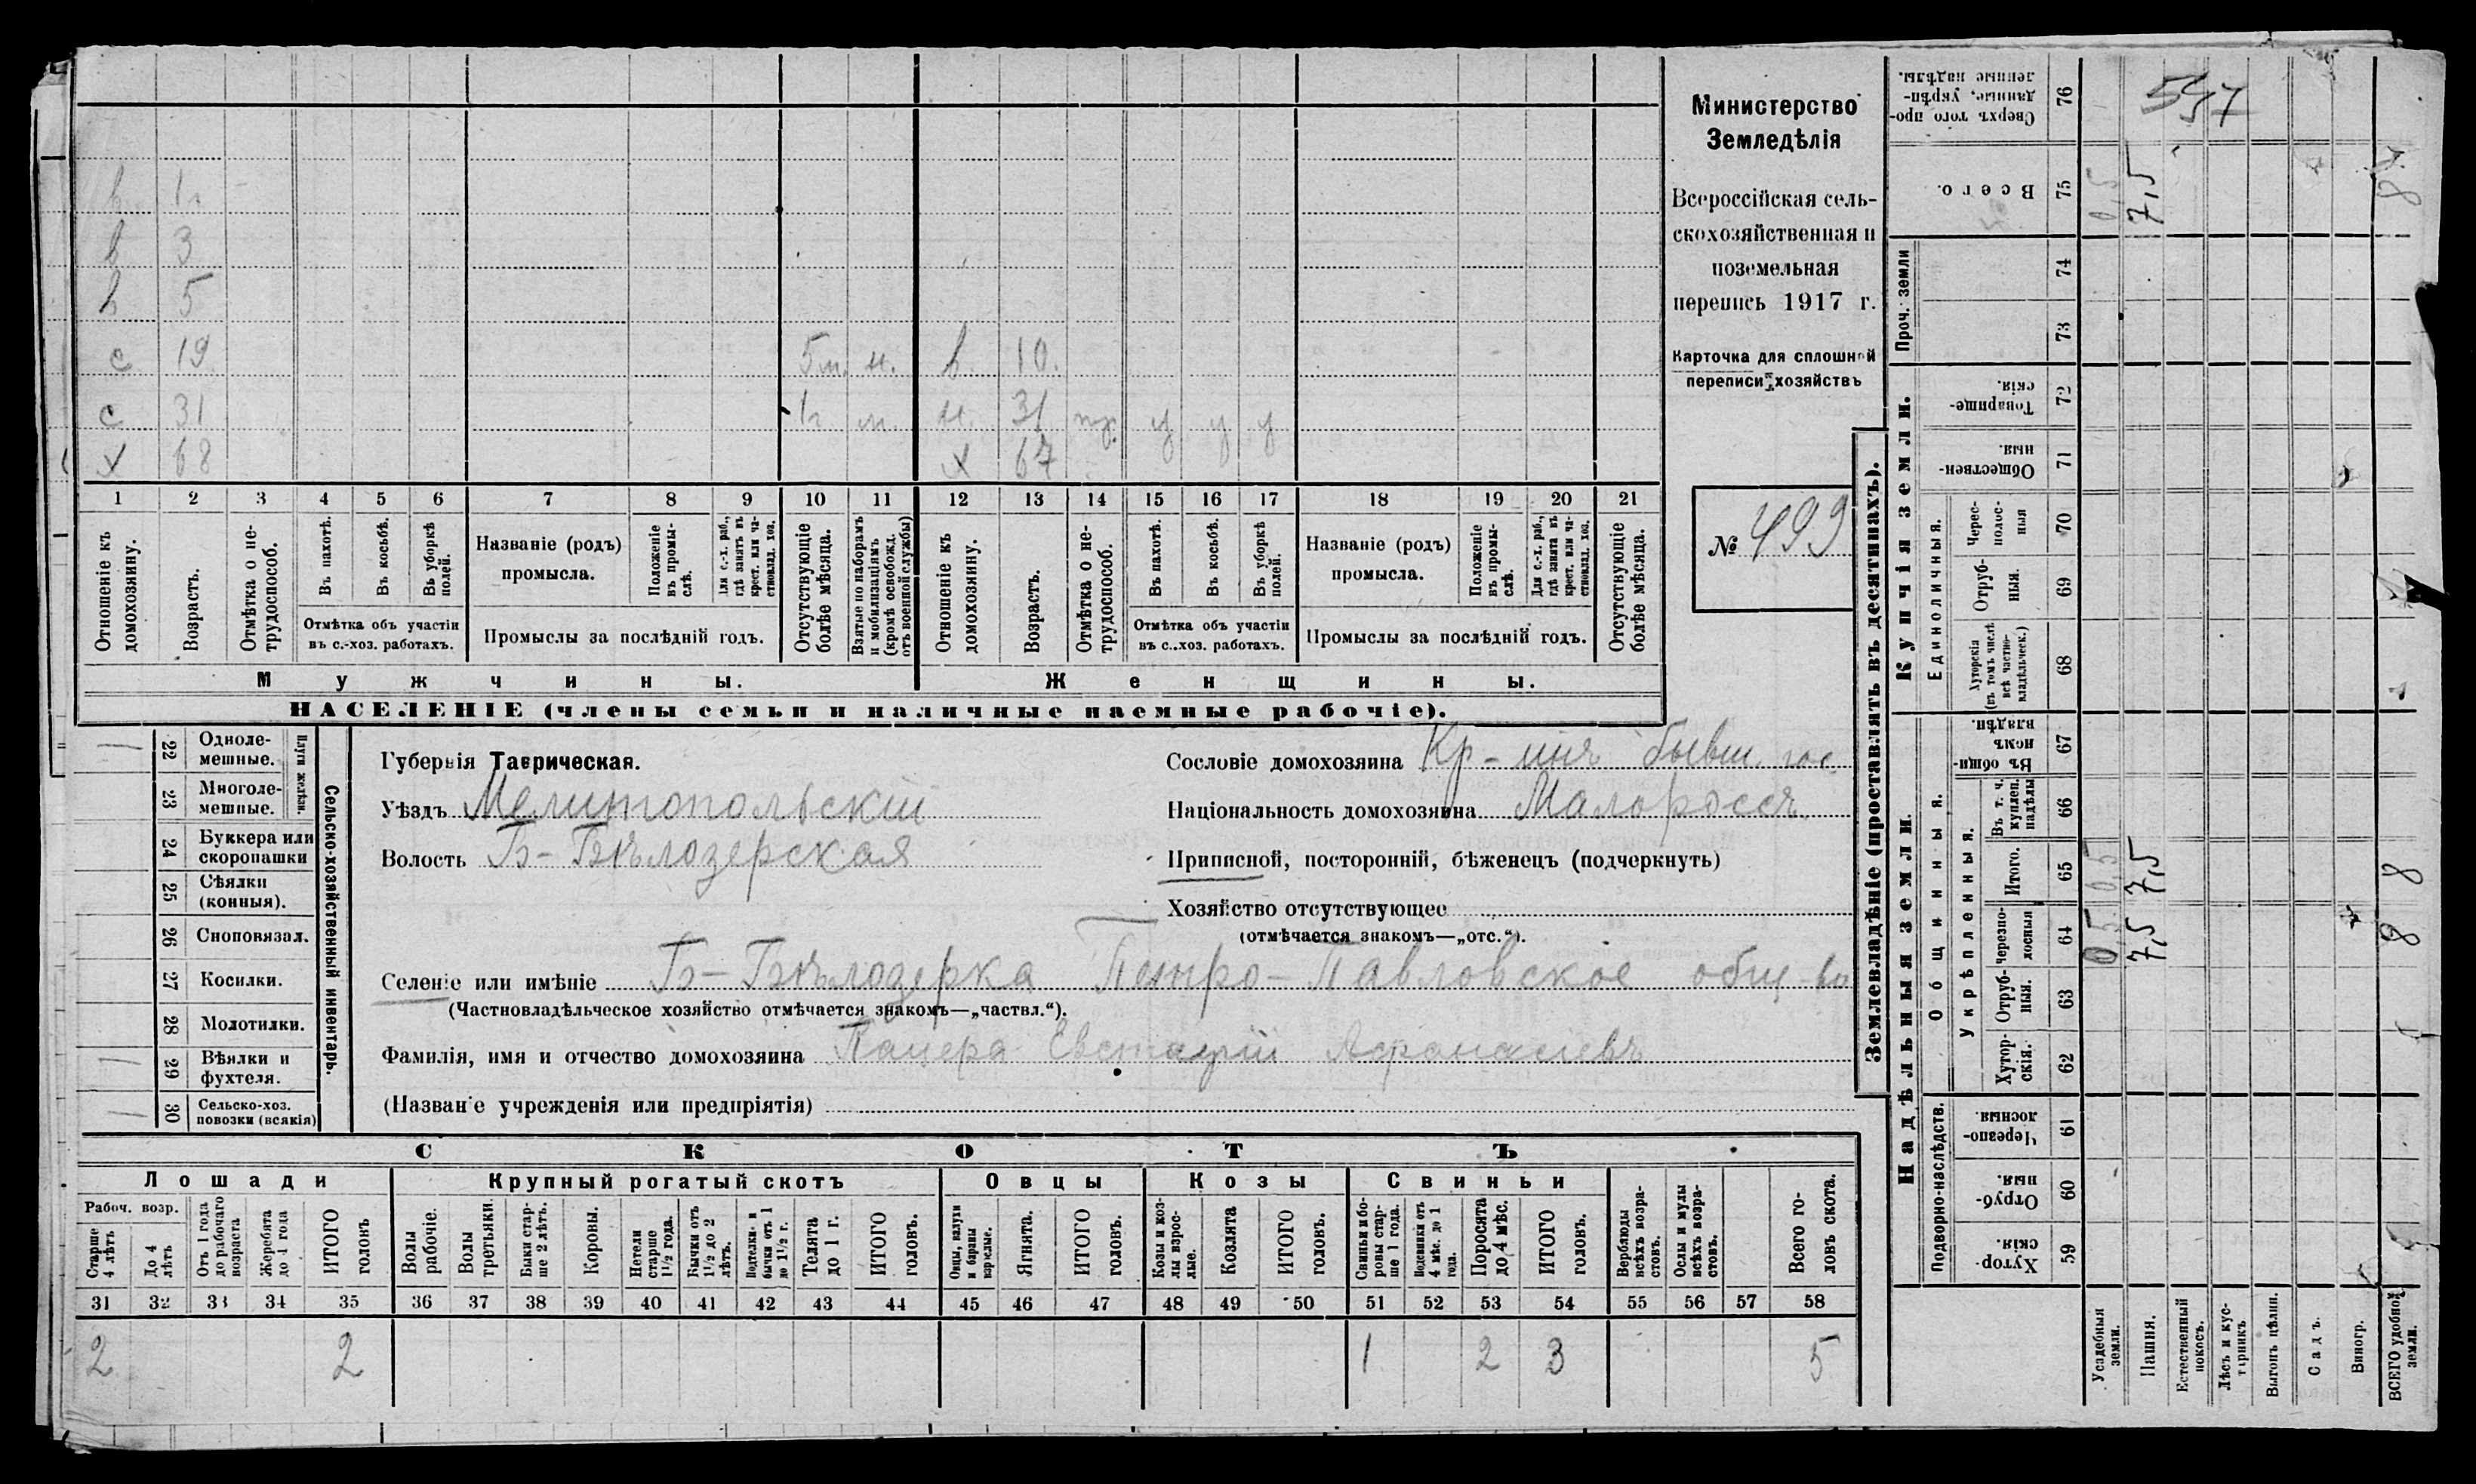 Министерство
Земледѣлія
Всероссійская сель-
скохозяйственная и
поземельная
перепись 1917 г.
Карточка для сплошной
переписи хозяйствъ
№ 499
в 1г
в 3
в 5
с 19 5м. н. в. 10.
с 31 1г м. н. 31 у у у
х 68 х 67
1 2 3 4 5 6 7 8 9 10 11 12 13 14 15 16 17 18 19 20 21
Отношеніе къ домохозяину.
Возрастъ.
Отмѣтка о не-трудоспособ.
Въ пахотѣ.
Въ косьбѣ.
Въ уборкѣ полей.
Отмѣтка объ участіи
въ с.-хоз. работахъ.
Названіе (родъ)
промысла.
Положеніе въ промы-слѣ.
Для с.-х. раб., гдѣ занятъ въ крест. или ча-стновлад. хоз.
Промыслы за послѣдній годъ.
Отсутствующіе болѣе мѣсяца.
Взятые по наборамъ и мобилизаціямъ (кромѣ освобожд. отъ военной службы)
Отношеніе къ домохозяину.
Возрастъ.
Отмѣтка о не-трудоспособ.
Въ пахотѣ.
Въ косьбѣ.
Въ уборкѣ полей.
Отмѣтка объ участіи
въ с..хоз. работахъ.
Названіе (родъ)
промысла.
Положеніе въ промы-слѣ.
Для с.-х. раб., гдѣ занята въ крест. или ча-стновлад. хоз.
Промыслы за послѣдній годъ.
Отсутствующіе болѣе мѣсяца.
Мужчины. Женщины.
НАСЕЛЕНІЕ (члены семьи и наличные наемные рабочіе).
Сельско-хозяйственный инвентарь.
Плуги желѣзн.
22 Одноле-мешные.
23 Многоле-мешные.
24 Буккера или скоропашки
25 Сѣялки (конныя).
26 Сноповязал.
27 Косилки.
28 Молотилки.
29 Вѣялки и фухтеля.
30 Сельско-хоз. повозки (всякія)
Губернія Таврическая.
Уѣздъ Мелитопольскій
Волость Б-Бѣлозерская
Сословіе домохозяина Кр-инъ бывш. гос.
Національность домохозяина Малороссъ.
Приписной, посторонній, бѣженецъ (подчеркнуть)
Хозяйство отсутствующее
(отмѣчается знакомъ—„отс.“).
Селеніе или имѣніе Б-Бѣлозерка Петро-Павловское общ-во
(Частновладѣльческое хозяйство отмѣчается знакомъ—„частвл.“).
Фамилія, имя и отчество домохозяина Пацера Евстафій Афанасіевъ
(Названіе учрежденія или предпріятія)
СКОТЪ
Лошади Крупный рогатый скотъ Овцы Козы Свиньи
Рабоч. возр.
Старше 4 лѣтъ
До 4 лѣтъ
Отъ 1 года до рабочаго возраста
Жеребята до 1 года
ИТОГО головъ
Волы рабочіе.
Волы третьяки.
Быки стар-ше 2 лѣтъ.
Коровы.
Нетели старше 1½ года.
Бычки отъ 1½ до 2 лѣтъ.
Подтелки и бычки отъ 1 до 1½ г.
Телята до 1 г.
ИТОГО головъ.
Овцы, валухи и бараны взрослые.
Ягнята.
ИТОГО головъ.
Козы и коз-лы взрос-лые.
Козлята
ИТОГО головъ.
Свиньи и бо-ровы стар-ше 1 года.
Подсвинки отъ 4 мѣс. до 1 года.
Поросята до 4 мѣс.
ИТОГО головъ.
Верблюды всѣхъ возра-стовъ.
Ослы и мулы всѣхъ возра-стовъ.
Всего го-ловъ скота.
31 32 33 34 35 36 37 38 39 40 41 42 43 44 45 46 47 48 49 50 51 52 53 54 55 56 57 58
2 2 1 2 3 5
Землевладѣніе (проставлять въ десятинахъ).
Надѣльныя земли.
Подворно-наслѣдств.
Хутор-скія. 59
Отруб-ныя. 60
Черезпо-лосныя. 61
Общинныя.
Укрѣпленныя.
Хутор-скія. 62
Отруб-ныя. 63
Черезпо-лосныя 64 0,5 7,5 8
Итого. 65 0,5 7,5 8
Въ т. ч. куплен. надѣлы 66
Въ общи-номъ владѣн. 67
Купчія земли.
Единоличныя.
Хуторскія (въ томъ числѣ всѣ частно-владѣльческ.) 68
Отруб-ныя. 69
Черес-полос-ныя 70
Обществен-ныя 71
Товарище-скія. 72
Проч. земли
73
74
Всего. 75 0,5 7,5 8
Сверхъ того про-данные, укрѣп-ленные надѣлы. 76
Усадебныя земли.
Пашня.
Естественный покосъ.
Лѣсъ и кус-тарникъ
Выгонъ цѣлин.
Садъ.
Виногр.
ВСЕГО удобной земли.